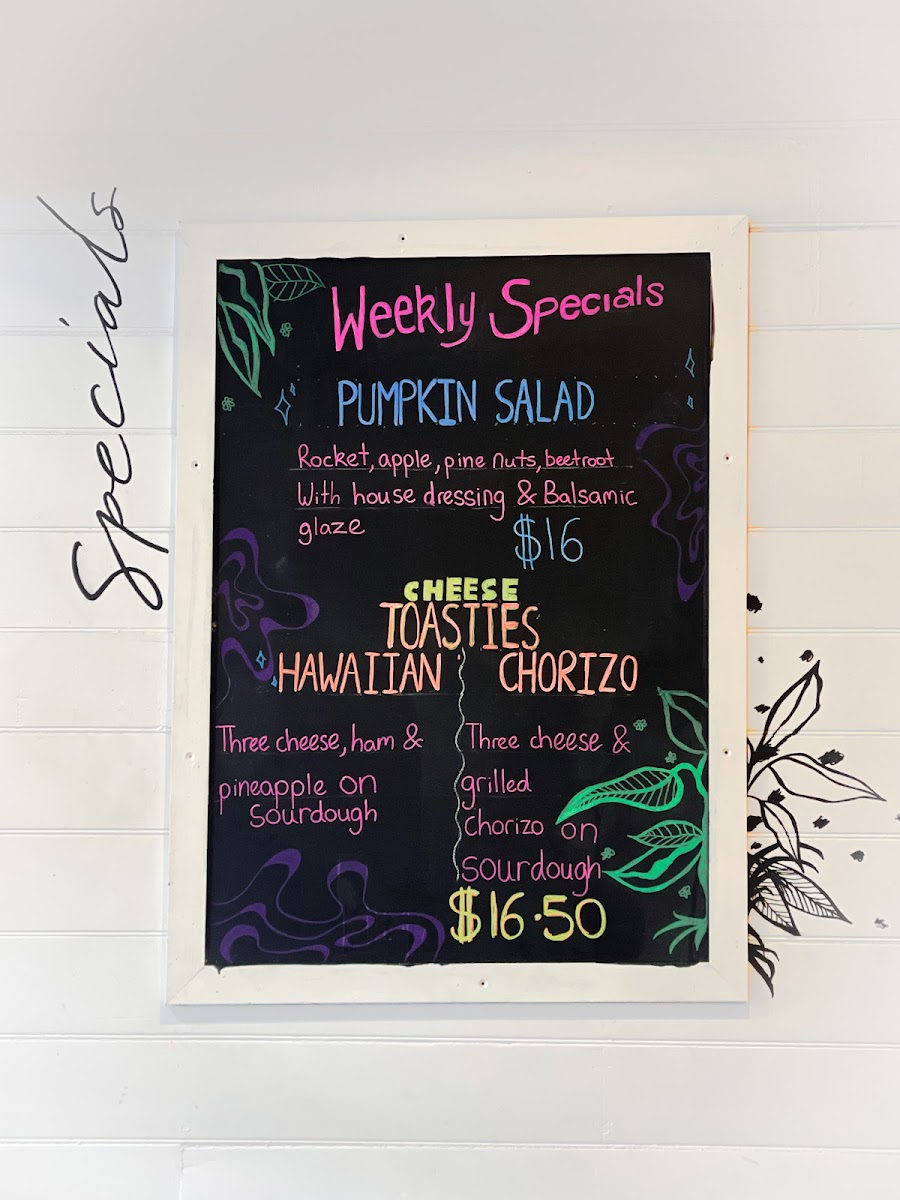 Specials
Weekly Specials
PUMPKIN SALAD
Rocket, apple, pine nuts, beetroot
With house dressing & Balsamic
glaze
$16
CHEESE
TOASTIES
HAWAIIAN
Three cheese, ham &
pineapple on
Sourdough
CHORIZO
Three cheese &
grilled
Chorizo on
sourdough
$16.50